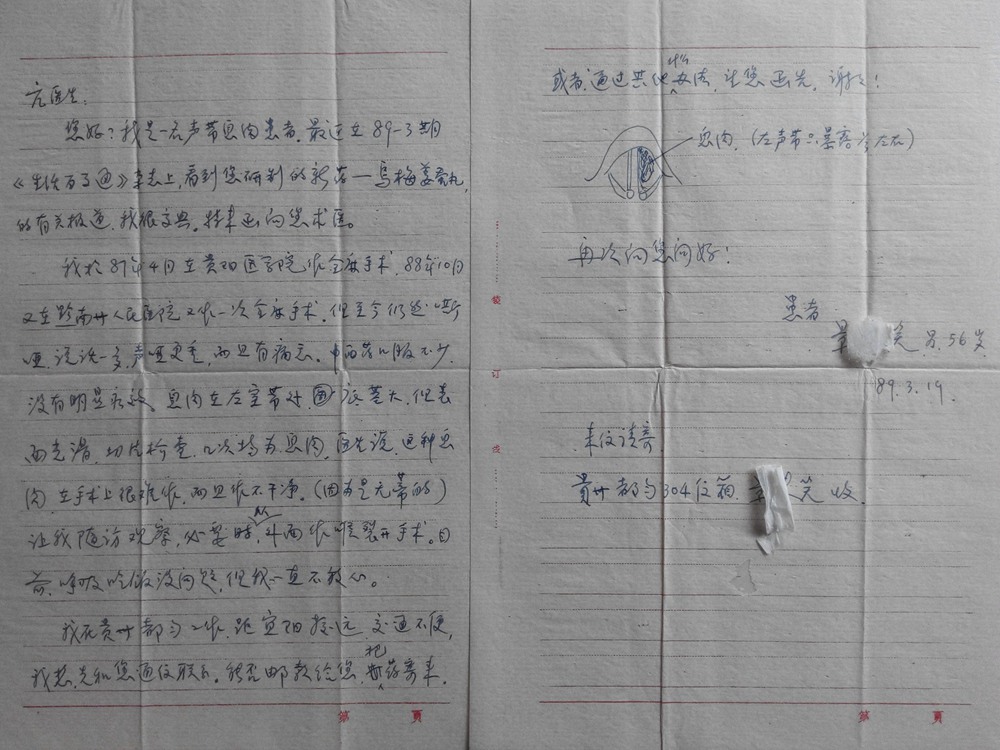 亢医生:
您好?我是一名声带息肉患者,最近在89-3期
《生活百事通》杂志上,看到您研制的新药—乌梅姜蚕丸,
的有关报道,我很高兴。特来函向您求医。
我於87年4月在贵阳医学院作全麻手术,88年10月
又在黔南州人民医院又作一次全麻手术,但至今仍然
哑,说话一多,声哑更重,而且有痛感。中西药服不少,
没有明显疗效,息肉在左室带处,底茎大,但表
面光滑,切片检查,几次均为息肉,医生说,这种息
肉,在手术上很难作,而且作不干净。(因为是无蒂的)
让我随访观察,必要时,从外面作喉裂开手术。目
前,呼吸吃饭没问题,但我一直不放心。
我在贵州都匀工作,距宜阳较远,交通不便,
我想先和您通信联系。能否邮款给您,把药寄来,
或者通过其他什么办法,让您函告,谢谢!
息肉,(左声带只暴露 左右)
再次向您问好!
患者
笑 男,56岁
89.3.19.
来信请寄
贵州都匀304信箱 笑 收
装
订
线
第 页
第 页